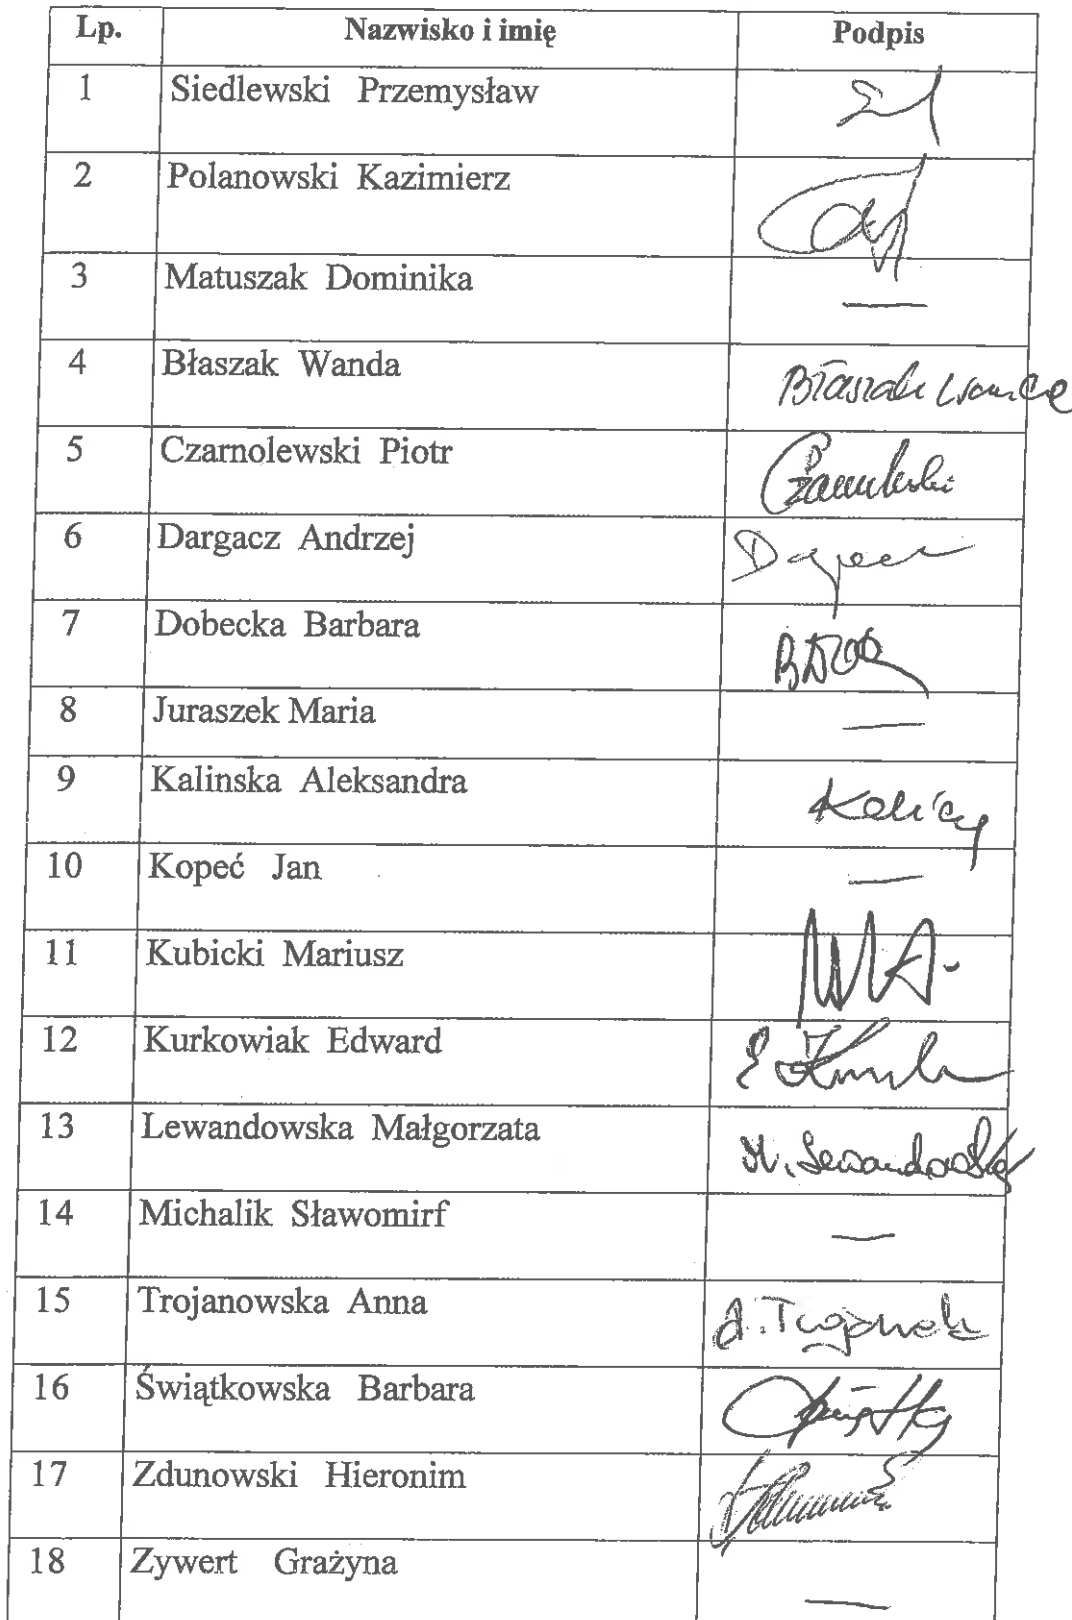 Lp. Nazwisko i imię Podpis
1 Siedlewski Przemysław
2 Polanowski Kazimierz
3 Matuszak Dominika —
4 Błaszak Wanda Błaszak Wanda
5 Czarnolewski Piotr
6 Dargacz Andrzej
7 Dobecka Barbara
8 Juraszek Maria —
9 Kalinska Aleksandra
10 Kopeć Jan —
11 Kubicki Mariusz
12 Kurkowiak Edward
13 Lewandowska Małgorzata M. Lewandowska
14 Michalik Sławomirf —
15 Trojanowska Anna
16 Świątkowska Barbara
17 Zdunowski Hieronim
18 Zywert Grażyna —